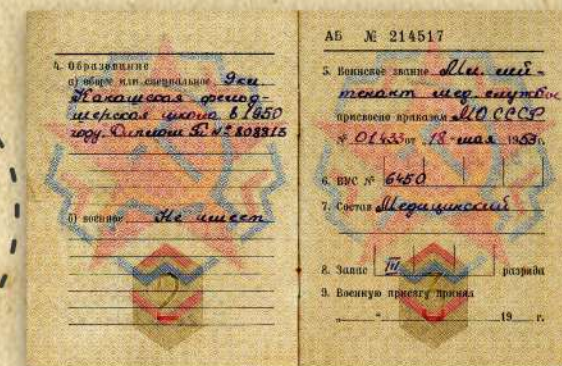 4. Образование
а) общее или специальное
школа в 1950
году. Диплом № 808315
б) военное Не имеет
2
АБ № 214517
5. Воинское звание Мл. лей-
тенант мед. службы
присвоено приказом МО СССР
№ 01433 от "18" мая 1953 г.
6. ВУС № 6450
7. Состав Медицинский
8. Запас III разряда
9. Военную присягу принял
„ “ 19 г.
3